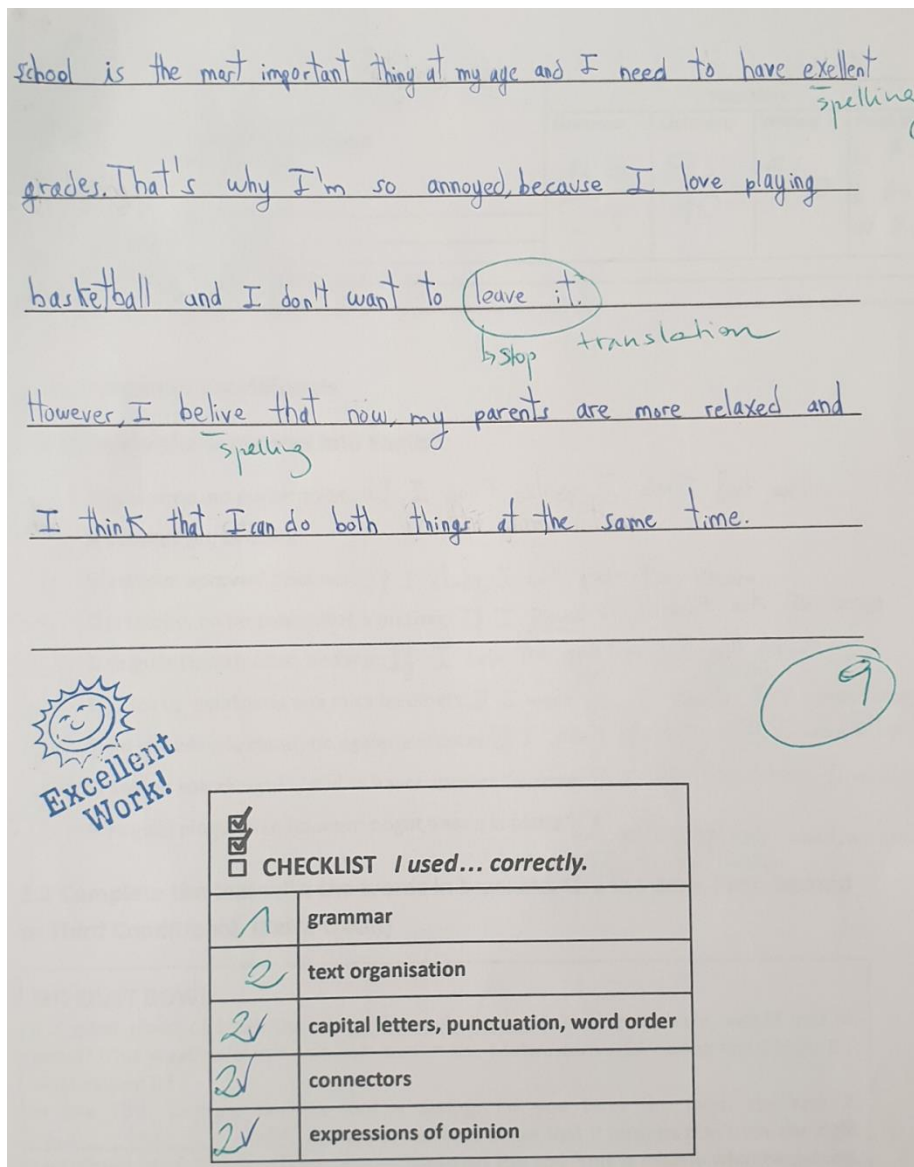 school is the most important thing at my age and I need to have exellent
spelling
grades. That's why I'm so annoyed, because I love playing
basketball and I don't want to leave it.
↳ stop translation
However, I belive that now, my parents are more relaxed and
spelling
I think that I can do both things at the same time.
9
Excellent
Work!
☑
☑
☐ CHECKLIST I used... correctly.
1 grammar
2 text organisation
2✓ capital letters, punctuation, word order
2✓ connectors
2✓ expressions of opinion